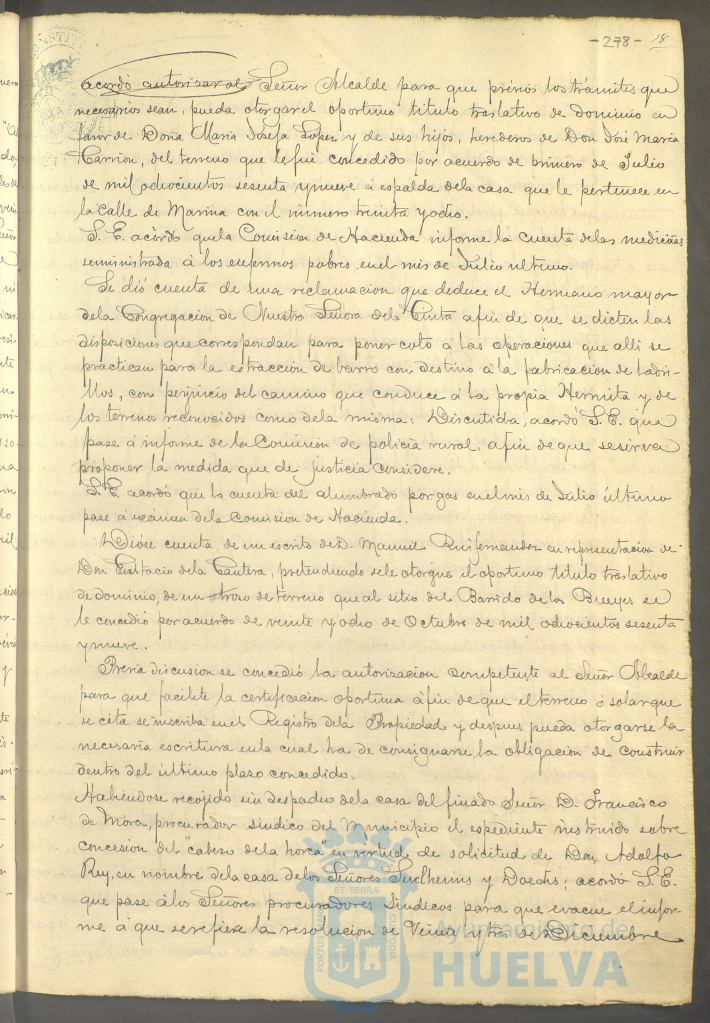 -278- 18
acordó autorizar al Señor Alcalde para que previos los trámites que
necesarios sean, pueda otorgar el oportuno titulo traslativo de dominio en
favor de Doña Maria Josefa Lopez y de sus hijos, herederos de Don José Maria
Carrion, del terreno que le fué concedido por acuerdo de primero de Julio
de mil ochocientos sesenta y nueve á espalda de la casa que le pertenece en
la calle de Marina con el número treinta y ocho.
S. E. acordó que la Comision de Hacienda informe la cuenta de las medicinas
suministrada á los enfermos pobres en el mes de Julio ultimo.
Se dió cuenta de una reclamacion que deduce el Hermano mayor
de la Congregacion de Nuestra Señora de la Cinta a fin de que se dicten las
disposiciones que correspondan para poner coto á las operaciones que alli se
practican para la estraccion de barro con destino á la fabricacion de ladri-
llos, con perjuicio del camino que conduce á la propia Hermita y de
los terrenos reconocidos como de la misma: Discutida, acordó S. E. que
pase á informe de la Comision de policia rural, a fin de que se sirva
proponer la medida que de justicia considere.
S. E. acordó que la cuenta del alumbrado por gas en el mes de Julio último
pase á exámen de la Comision de Hacienda.
Dióse cuenta, de un escrito de D. Manuel Ruifernandez en representacion de
Don Eustacio de la Cantera, pretendiendo se le otorgue el oportuno titulo traslativo
de dominio, de un trozo de terreno que al sitio del Barrido de los Bueyes se
le concedió por acuerdo de veinte y ocho de Octubre de mil ochocientos sesenta
y nueve.
Previa discusion se concedió la autorizacion competente al Señor Alcalde
para que facilite la certificacion oportuna á fin de que el terreno ó solar que
se cita se inscriba en el Registro de la Propiedad y despues pueda otorgarse la
necesaria escritura en la cual ha de consignarse la obligacion de construir
dentro del último plazo concedido.
Habiendose recojido sin despacho de la casa del finado Señor D. Francisco
de Mora, procurador sindico del Municipio el espediente instruido sobre
concesion del "cabezo de la horca" en virtud de solicitud de Don Adolfo
Rey, en nombre de la casa de los Señores Sudheims y Doechs; acordó S. E.
que pase á los Señores procuradores Sindicos para que evacue el infor-
me á que se refiere la resolucion de Veinte y tres de Diciembre
ET TERRA
PORTUS MARIS
CUSTODIA
Ayuntamiento de
HUELVA